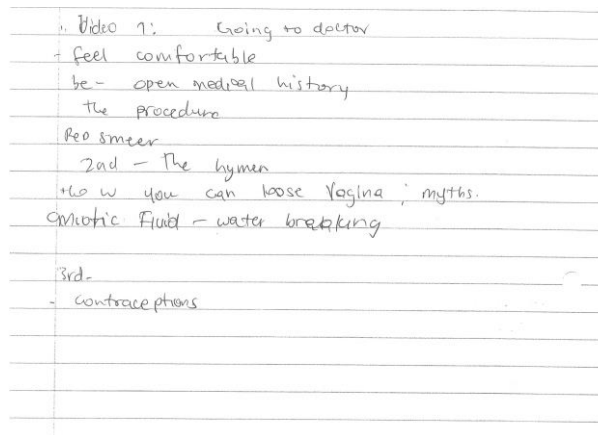 Video 1: Going to doctor
- feel comfortable
be - open medical history
the procedure
Pep smeer
2nd - The hymen
How you can loose Vagina ; myths.
amiotic Fluid - water breaking
3rd -
- contraceptions